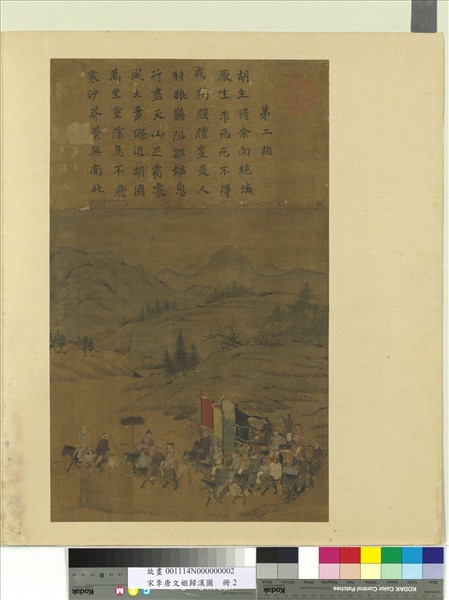 第二拍
胡主將余向絕域
厭生求死死不得
戎羯腥膻豈是人
豺狼喜怒難姑息
行盡天山足霜霰
風土蕭條近胡國
萬里重陰鳥不飛
寒沙莽莽無南北
故畫 001114N000000002
宋李唐文姬歸漢圖 冊 2
Kodak
KODAK Color Control Patches
Kodak